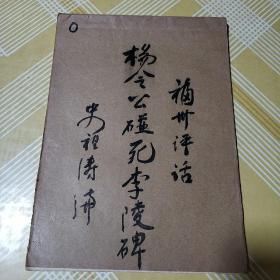 福州评话
杨令公碰死李陵碑
史祖涛誦